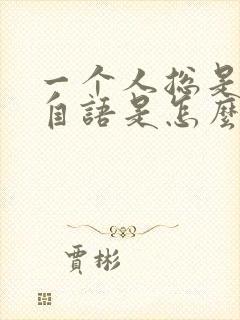 一个人总是
自語是怎麼
賈彬